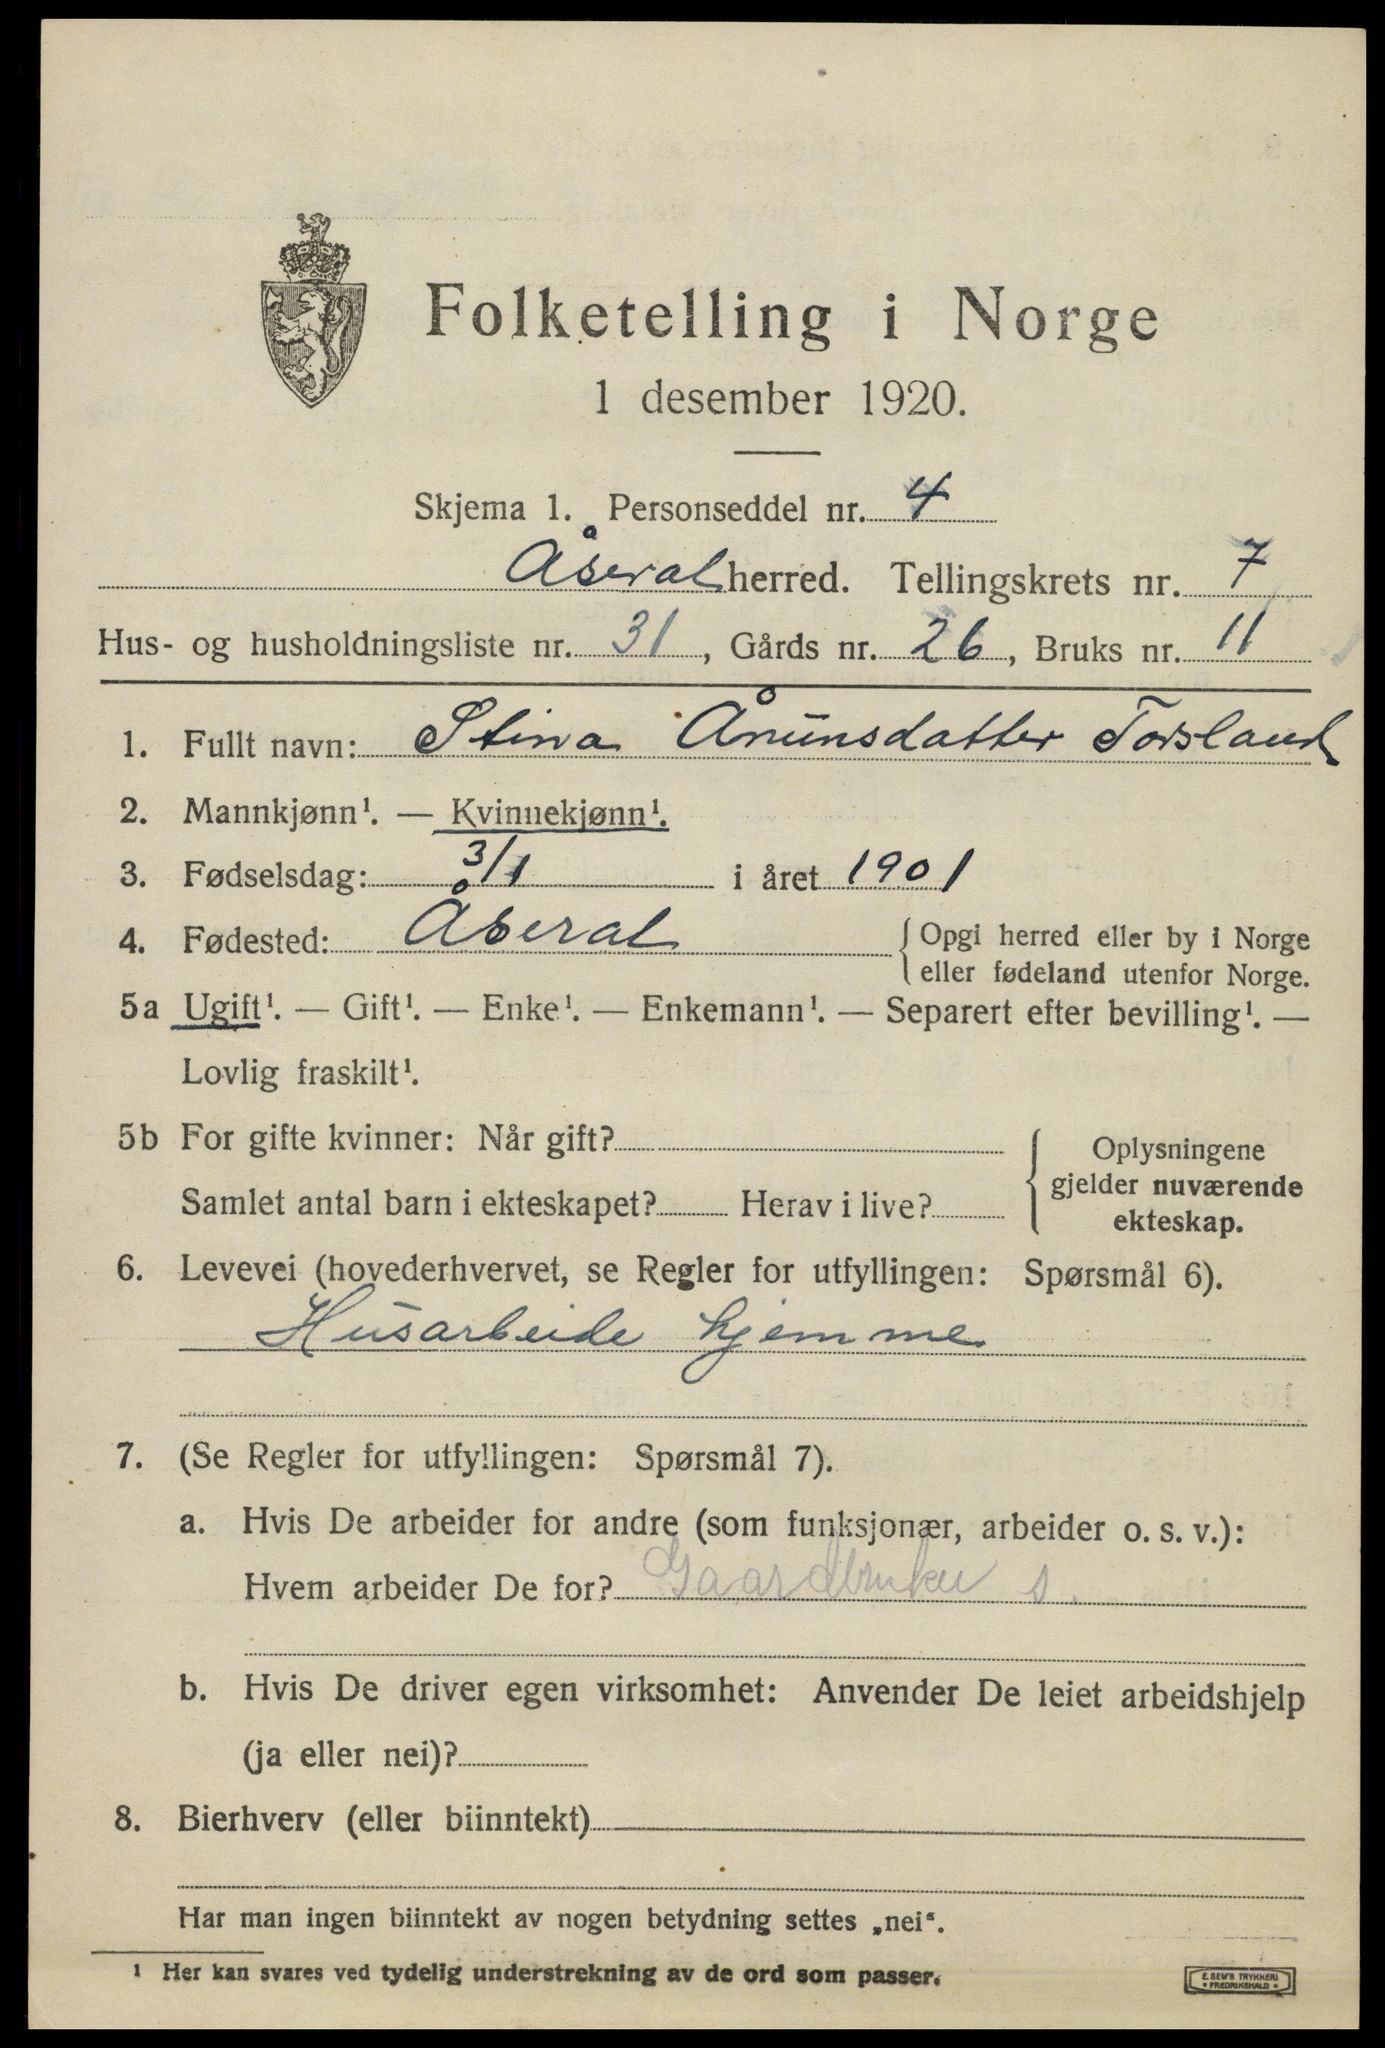 Folketelling i Norge
1 desember 1920.
Skjema 1. Personseddel nr. 4
Åseral herred. Tellingskrets nr. 7
Hus- og husholdningsliste nr. 31, Gårds nr. 26, Bruks nr. 11
1. Fullt navn: Stina Ånunsdatter Torsland
2. Mannkjønn¹. — Kvinnekjønn¹.
3. Fødselsdag: 3/1 i året 1901
4. Fødested: Åseral { Opgi herred eller by i Norge
eller fødeland utenfor Norge.
5a Ugift¹. — Gift¹. — Enke¹. — Enkemann¹. — Separert efter bevilling¹. —
Lovlig fraskilt¹.
5b For gifte kvinner: Når gift?
Samlet antal barn i ekteskapet? Herav i live?
{ Oplysningene
gjelder nuværende
ekteskap.
6. Levevei (hovederhvervet, se Regler for utfyllingen: Spørsmål 6).
Husarbeide hjemme
7. (Se Regler for utfyllingen: Spørsmål 7).
a. Hvis De arbeider for andre (som funksjonær, arbeider o. s. v.):
Hvem arbeider De for? Gaardbruker s.
b. Hvis De driver egen virksomhet: Anvender De leiet arbeidshjelp
(ja eller nei)?
8. Bierhverv (eller biinntekt)
Har man ingen biinntekt av nogen betydning settes „nei“.
¹ Her kan svares ved tydelig understrekning av de ord som passer.
E. SEM'S TRYKKERI
• FREDRIKSHALD •